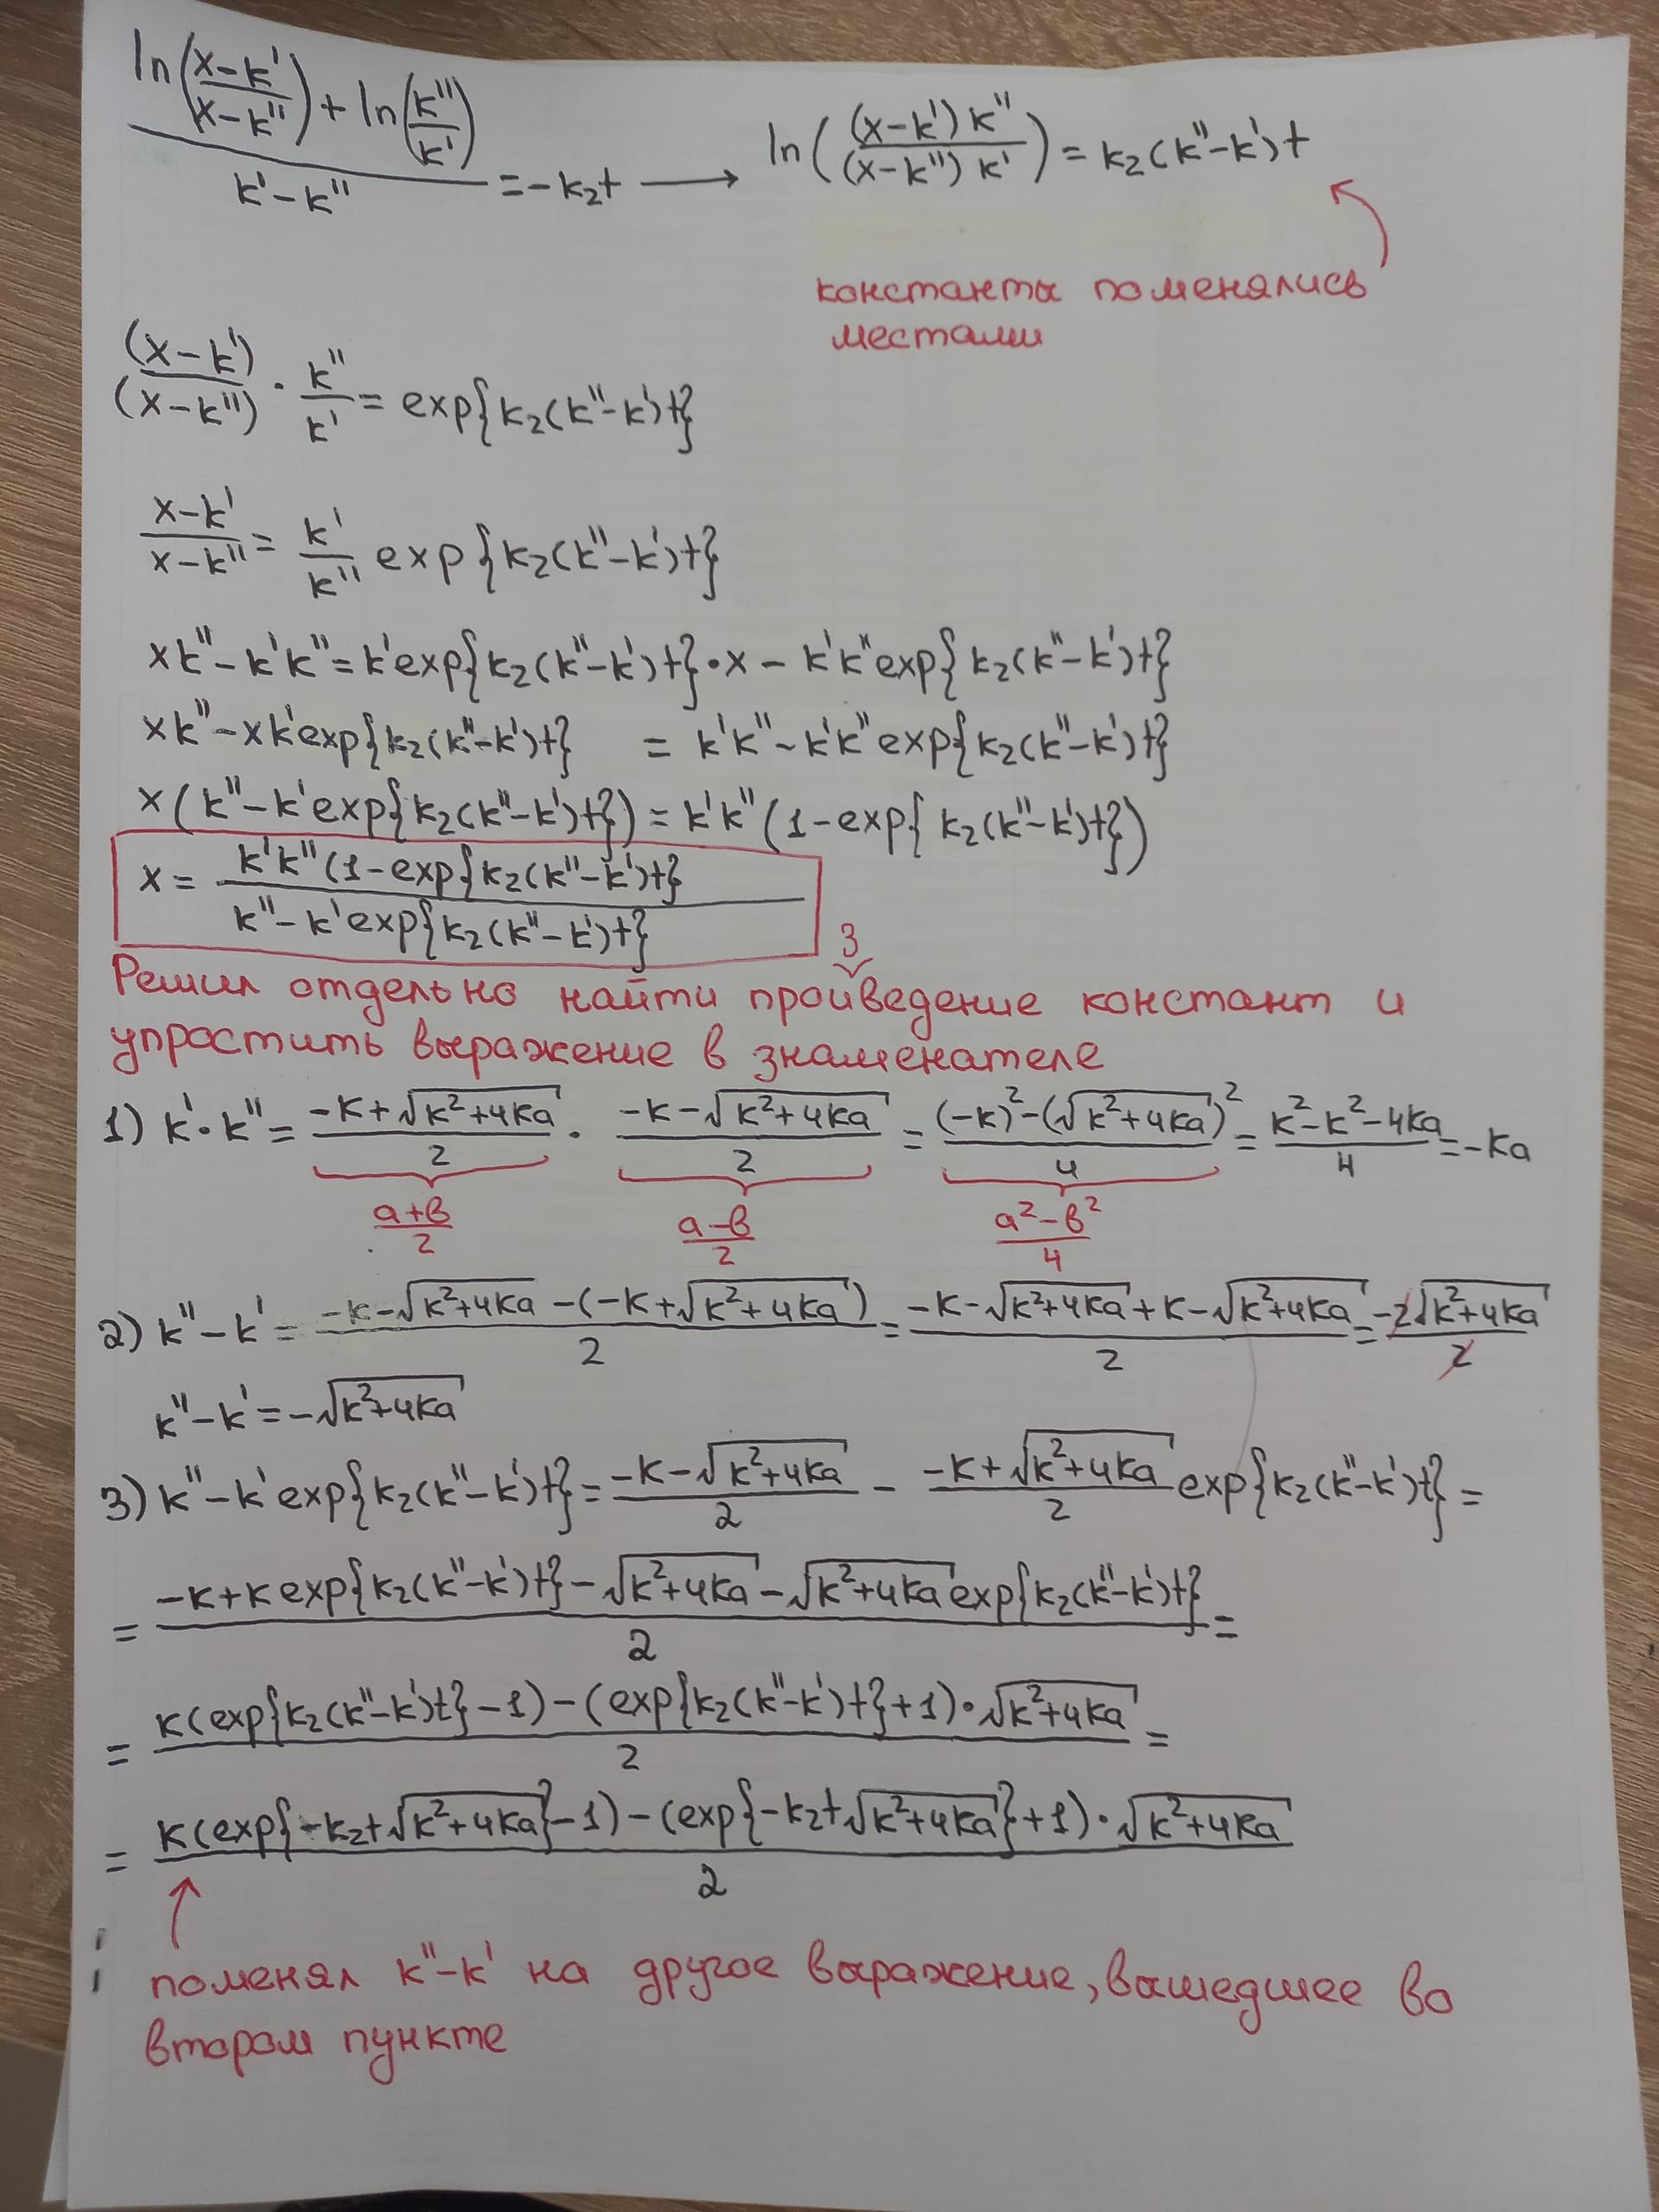 ln((x-k')/(x-k'')) + ln(k''/k') / k'-k'' = -k₂t → ln((x-k')k''/(x-k'')k') = k₂(k''-k')t
константы поменялись
местами
(x-k')/(x-k'') · k''/k' = exp{k₂(k''-k')t}
x-k'/x-k'' = k'/k'' exp{k₂(k''-k')t}
xk''-k'k''=k'exp{k₂(k''-k')t}·x - k'k''exp{k₂(k''-k')t}
xk''-xk'exp{k₂(k''-k')t} = k'k''-k'k''exp{k₂(k''-k')t}
x(k''-k'exp{k₂(k''-k')t}) = k'k''(1-exp{k₂(k''-k')t})
x = k'k''(1-exp{k₂(k''-k')t} / k''-k'exp{k₂(k''-k')t}
з
Решил отдельно найти проиведение констант и
упростить выражение в знаменателе
1) k'·k'' = -K+√(K²+4Ka)/2 · -K-√(K²+4Ka)/2 = (-K)²-(√(K²+4Ka))²/4 = K²-K²-4Ka/4 = -Ka
a+b/2 a-b/2 a²-b²/4
2) k''-k' = -K-√(K²+4Ka)-(-K+√(K²+4Ka))/2 = -K-√(K²+4Ka)+K-√(K²+4Ka)/2 = -2√(K²+4Ka)/2
k''-k' = -√(K²+4Ka)
3) k''-k'exp{k₂(k''-k')t} = -K-√(K²+4Ka)/2 - -K+√(K²+4Ka)/2 exp{k₂(k''-k')t} =
= -K+K exp{k₂(k''-k')t}-√(K²+4Ka)-√(K²+4Ka)exp{k₂(k''-k')t}/2 =
= K(exp{k₂(k''-k')t}-1)-(exp{k₂(k''-k')t}+1)·√(K²+4Ka)/2 =
= K(exp{-k₂t√(K²+4Ka)}-1)-(exp{-k₂t√(K²+4Ka)}+1)·√(K²+4Ka)/2
поменял k''-k' на другое выражение, вышедшее во
втором пункте